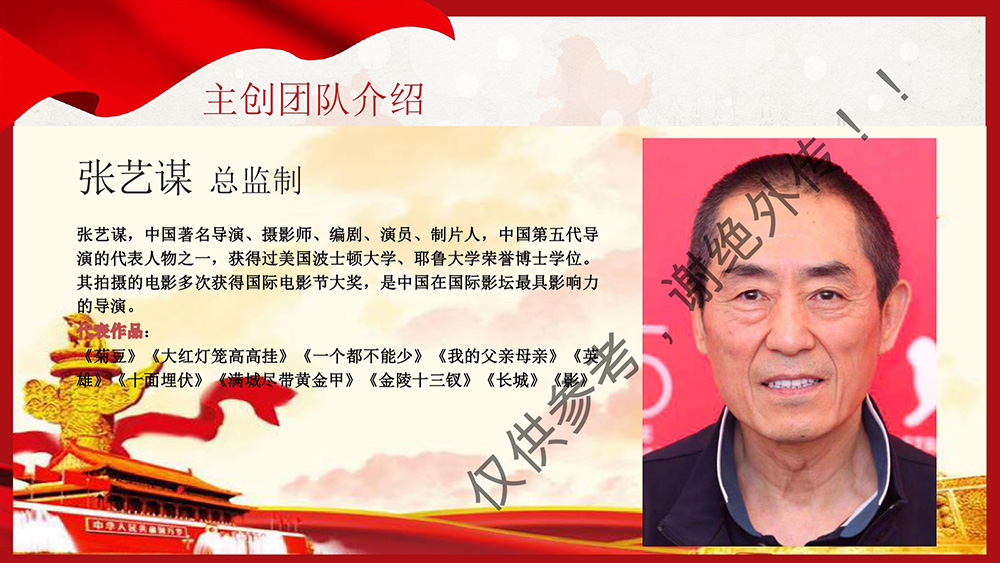 主创团队介绍
张艺谋 总监制
张艺谋，中国著名导演、摄影师、编剧、演员、制片人，中国第五代导
演的代表人物之一，获得过美国波士顿大学、耶鲁大学荣誉博士学位。
其拍摄的电影多次获得国际电影节大奖，是中国在国际影坛最具影响力
的导演。
代表作品：
《菊豆》《大红灯笼高高挂》《一个都不能少》《我的父亲母亲》《英
雄》《十面埋伏》《满城尽带黄金甲》《金陵十三钗》《长城》《影》
仅供参考，谢绝外传！！
中华人民共和国万岁